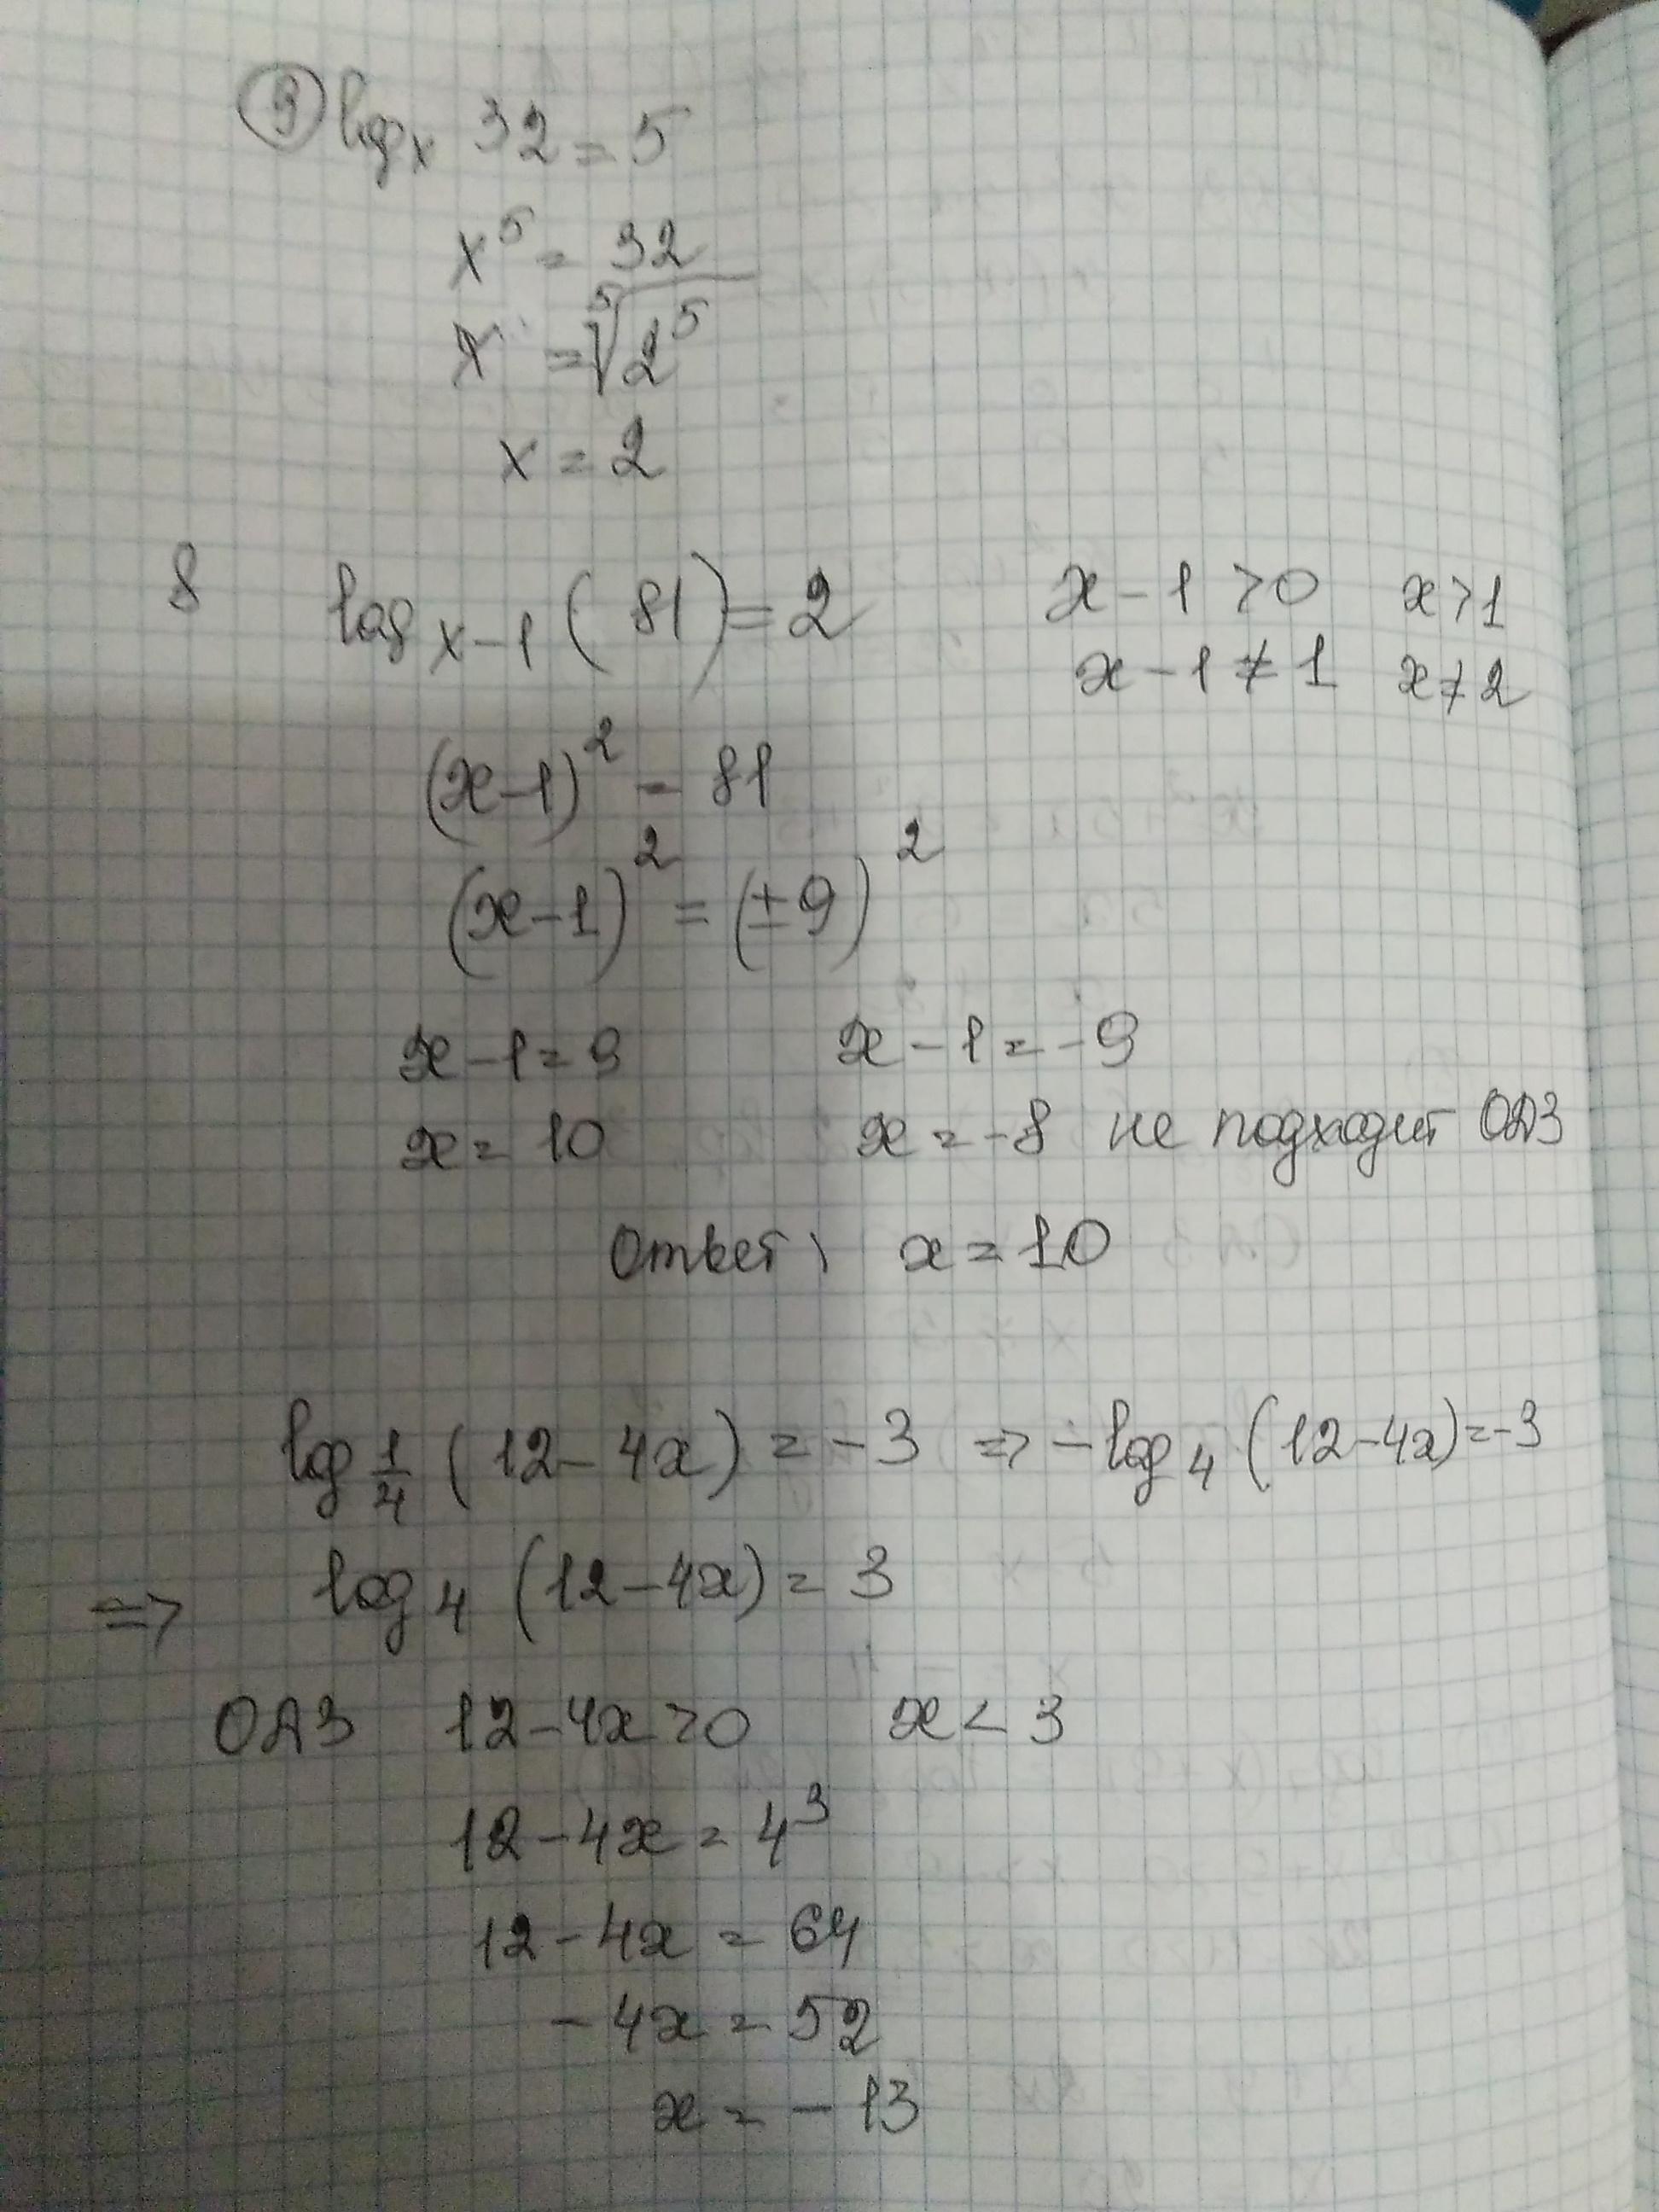 ③ log_x 32 = 5
x^5 = 32
x = ⁵√(2^5)
x = 2
8 log_{x-1} (81) = 2 x - 1 > 0 x > 1
x - 1 ≠ 1 x ≠ 2
(x-1)^2 = 81
(x-1)^2 = (±9)^2
x - 1 = 9 x - 1 = -9
x = 10 x = -8 не подходит ОДЗ
Ответ: x = 10
log_{1/4} (12 - 4x) = -3 => -log_4 (12-4x) = -3
=> log_4 (12-4x) = 3
ОДЗ 12-4x > 0 x < 3
12 - 4x = 4^3
12 - 4x = 64
-4x = 52
x = -13